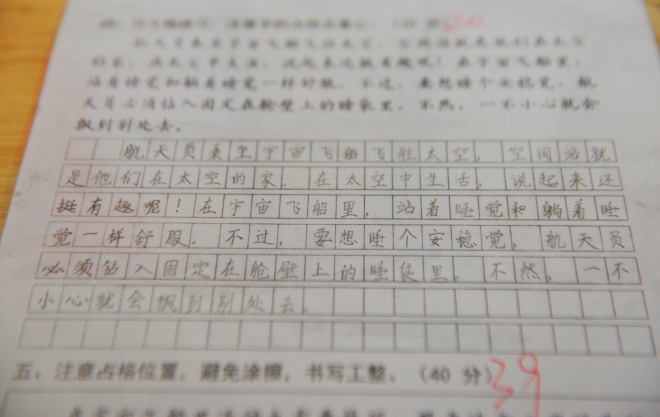 航天员乘坐宇宙飞船飞往太空，空间站就是他们在太空
的家。在太空中生活，说起来还挺有趣呢！在宇宙飞船里，
站着睡觉和躺着睡觉一样舒服。不过，要想睡个安稳觉，航
天员必须钻入固定在舱壁上的睡袋里。不然，一不小心就会
飘到别处去。
航天员乘坐宇宙飞船飞往太空，空间站就
是他们在太空的家。在太空中生活，说起来还
挺有趣呢！在宇宙飞船里，站着睡觉和躺着睡
觉一样舒服。不过，要想睡个安稳觉，航天员
必须钻入固定在舱壁上的睡袋里。不然，一不
小心就会飘到别处去。
五、注意占格位置，避免涂擦，书写工整。（40 分）39